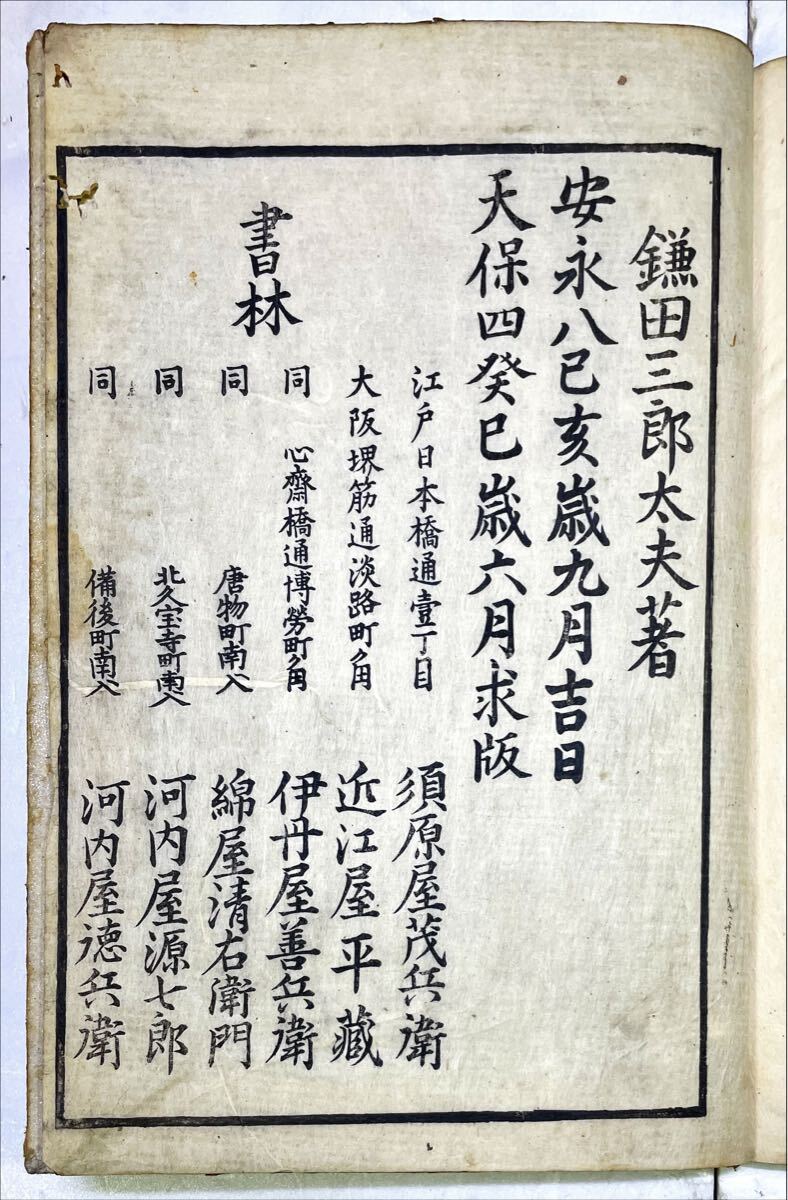 鎌田三郎太夫著
安永八己亥歳九月吉日
天保四癸巳歳六月求版
書林
江戸日本橋通壹丁目 須原屋茂兵衛
大阪堺筋通淡路町角 近江屋平藏
同 心齋橋通博勞町角 伊丹屋善兵衛
同 唐物町南入 綿屋清右衛門
同 北久宝寺町南入 河内屋源七郎
同 備後町南入 河内屋徳兵衛